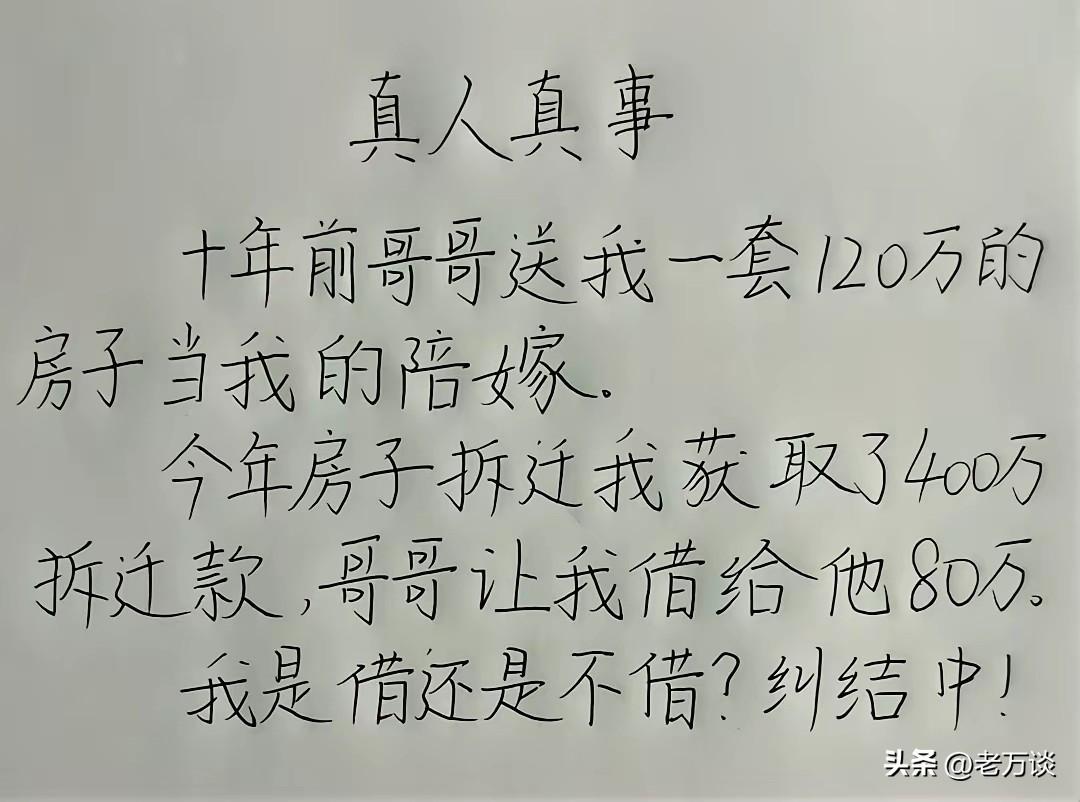 真人真事
十年前哥哥送我一套120万的
房子当我的陪嫁。
今年房子拆迁我获取了400万
拆迁款,哥哥让我借给他80万。
我是借还是不借?纠结中!
头条 @老万谈